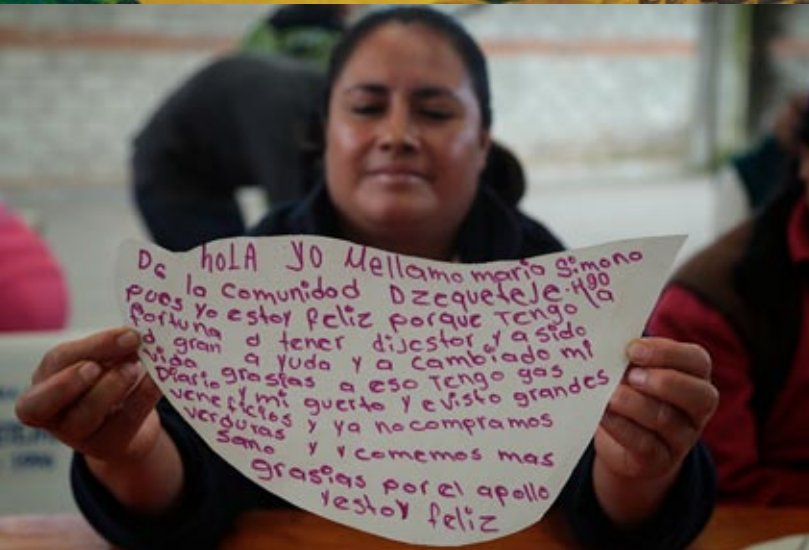 hoLA yo Mellamo mario Simona
De la comunidad Dzequeteje.Hgo
pues yo estoy feliz porque Tengo la
fortuna d tener dijestor y a sido
d gran a yuda y a cambiado mi
vida grasias a eso Tengo gas
Diario y mi guerto y evisto grandes
veneficios y ya nocompramos
verduras y ycomemos mas
sano
grasias por el apollo
yestoy feliz
1996